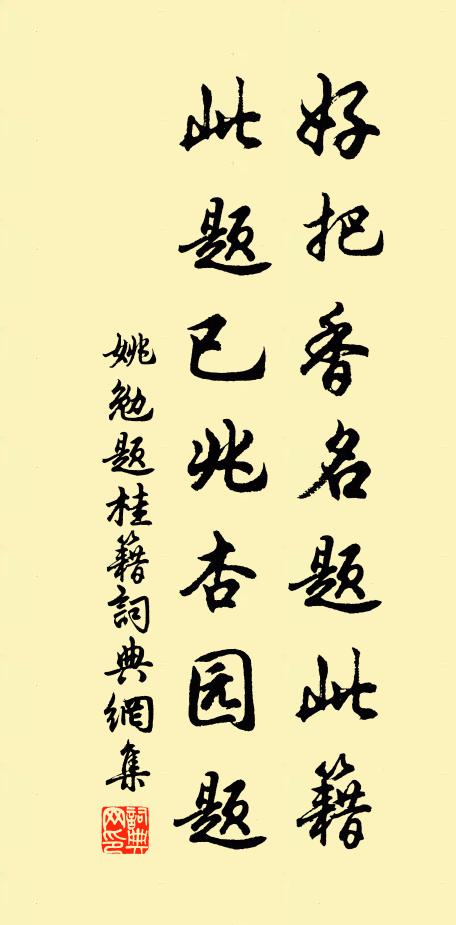 好把香名题此籍
此题已兆杏园题
姚勉题桂籍詞典網集
詞典
网印